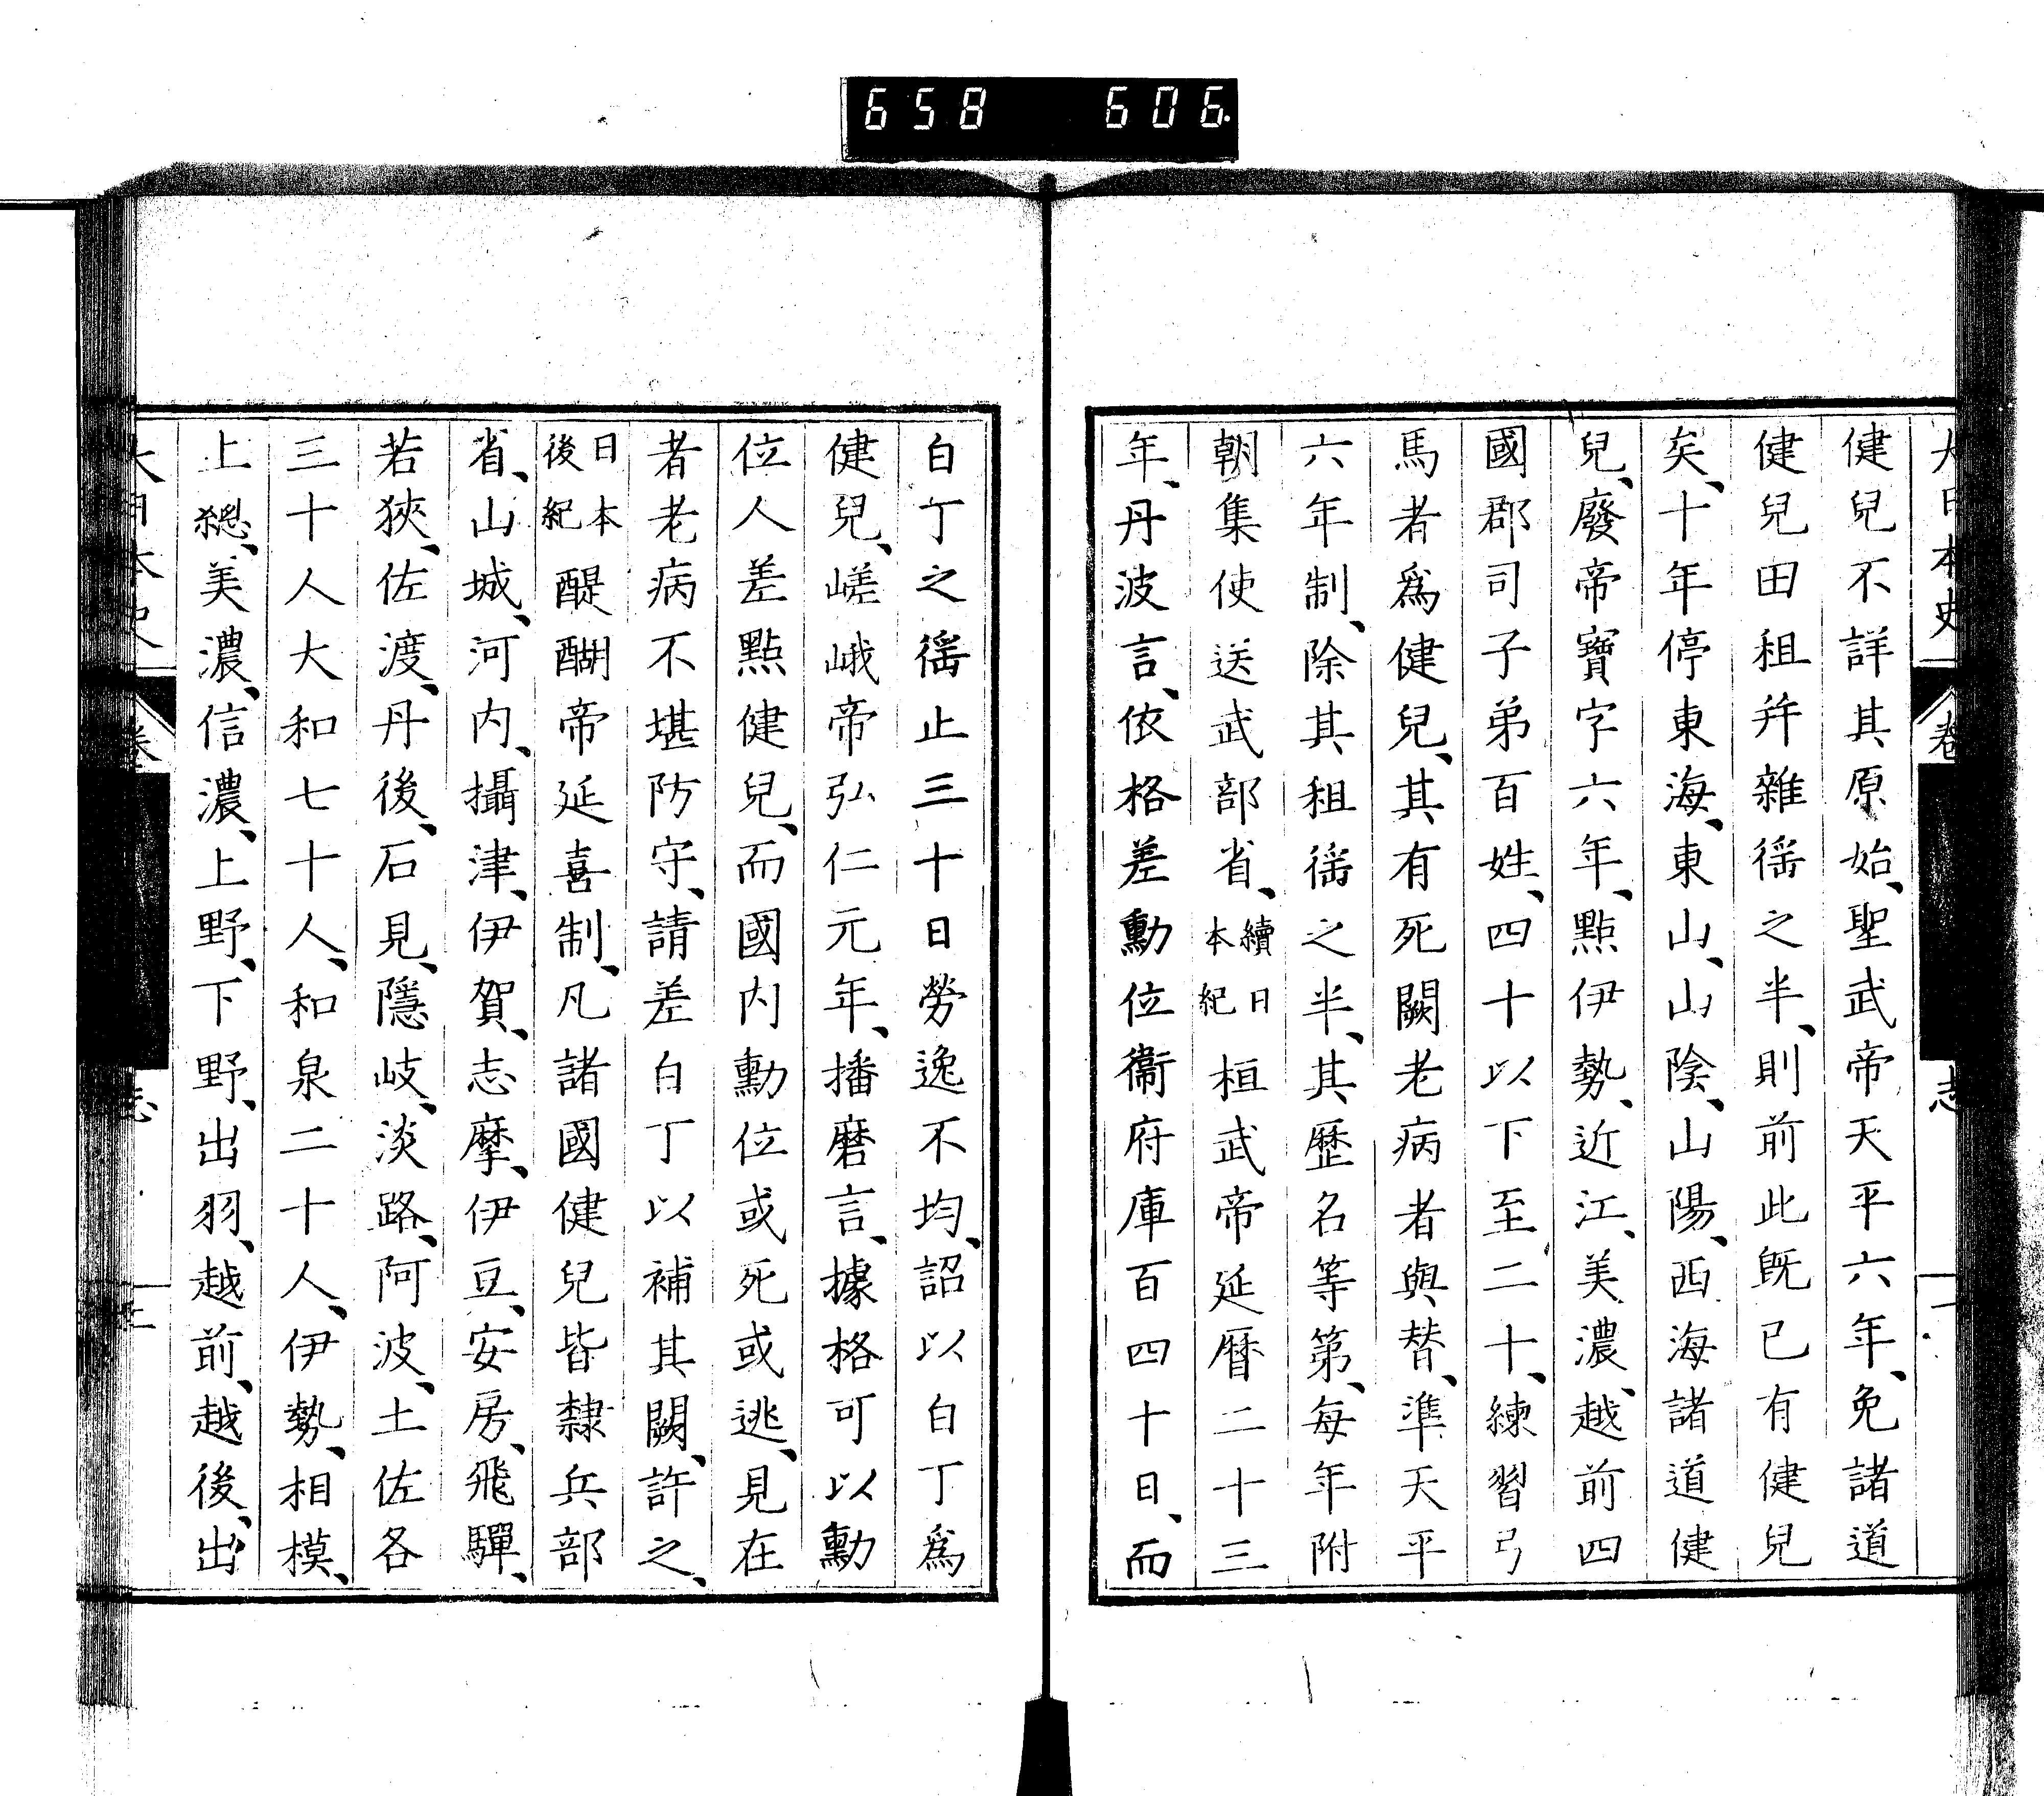 658 606
大日本史 卷 志 一
健兒不詳其原始、聖武帝天平六年、免諸道
健兒田租并雜徭之半、則前此既已有健兒
矣、十年停東海、東山、山陰、山陽、西海諸道健
兒、廢帝寶字六年、點伊勢、近江、美濃、越前四
國郡司子弟百姓、四十以下至二十、練習弓
馬者爲健兒、其有死闕老病者與替、準天平
六年制、除其租徭之半、其歷名等第、每年附
朝集使送武部省、續日本紀桓武帝延曆二十三
年、丹波言、依格差勳位衞府庫百四十日、而
白丁之徭止三十日勞逸不均、詔以白丁爲
健兒、嵯峨帝弘仁元年、播磨言、據格可以勳
位人差點健兒、而國内勳位或死或逃、見在
者老病不堪防守、請差白丁以補其闕、許之、
日本後紀醍醐帝延喜制、凡諸國健兒皆隸兵部
省、山城、河内、攝津、伊賀、志摩、伊豆、安房、飛驒、
若狹、佐渡、丹後、石見、隱岐、淡路、阿波、土佐各
三十人大和七十人、和泉二十人、伊勢、相模、
上總、美濃、信濃、上野、下野、出羽、越前、越後、出
大日本史 卷 志